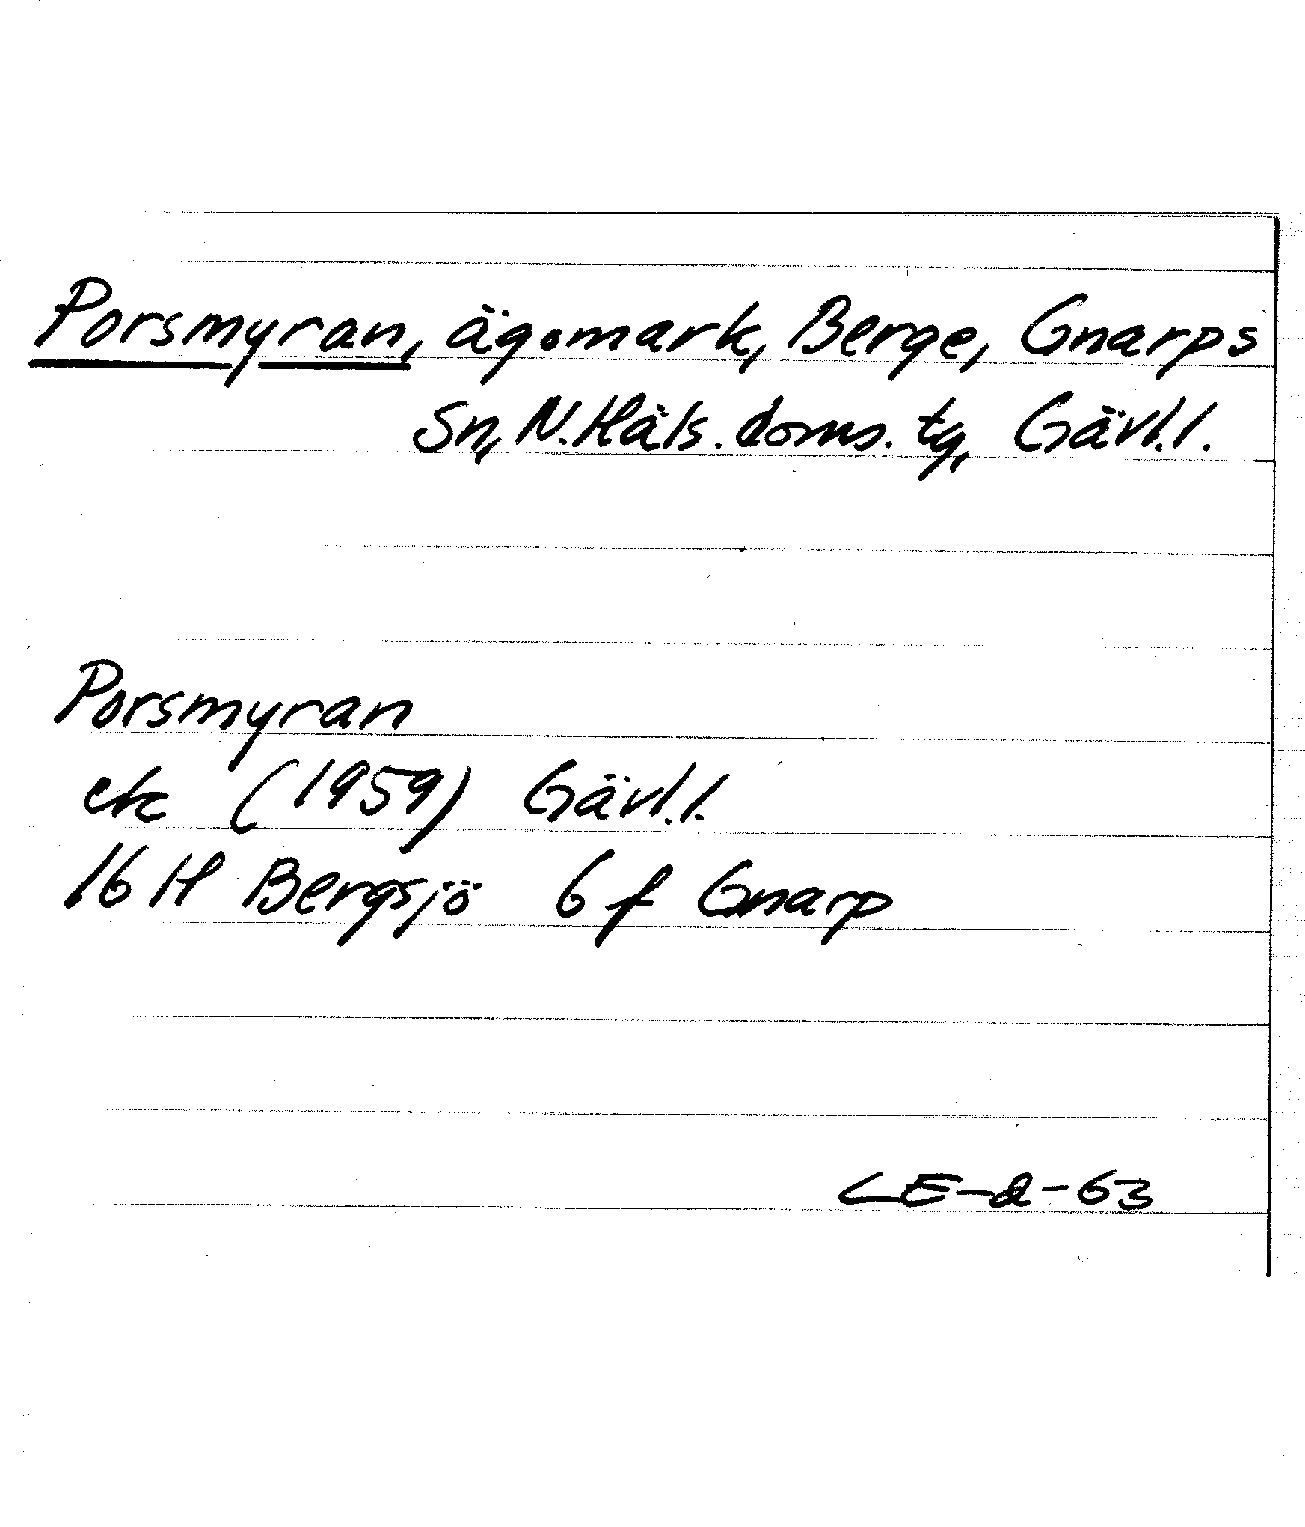 Porsmyran, ägomark, Berge, Gnarps
Sn, N. Häls. doms. tg, Gävl. l.
Porsmyran
ek (1959) Gävl. l.
16 H Bergsjö 6 f Gnarp
LE-a-63